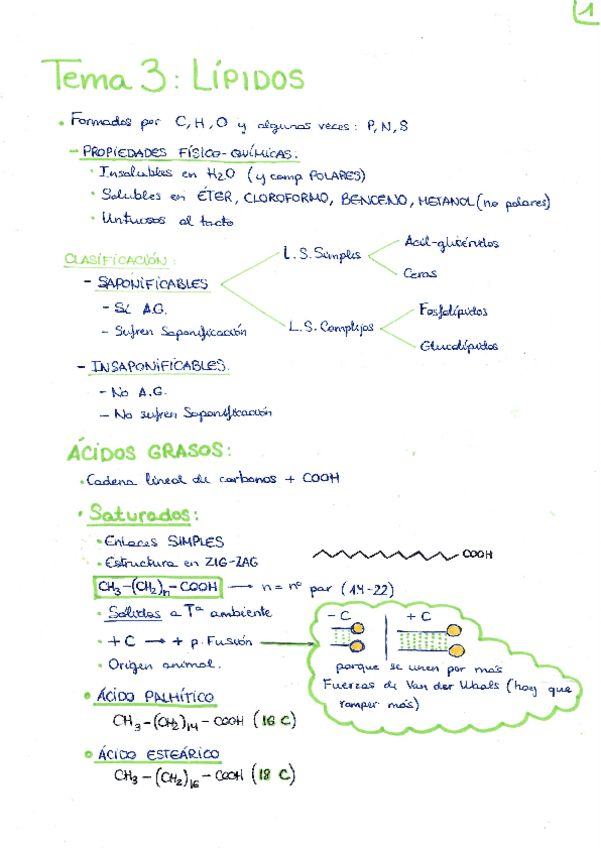 1
Tema 3: LÍPIDOS
• Formados por C, H, O y algunas veces: P, N, S
- PROPIEDADES FÍSICO-QUÍMICAS:
· Insolubles en H₂O (y comp POLARES)
· Solubles en ÉTER, CLOROFORMO, BENCENO, METANOL (no polares)
· Untuosos al tacto
CLASIFICACIÓN:
- SAPONIFICABLES
- Sí A.G.
- Sufren Saponificación
L.S. Simples
Acil-glicéridos
Ceras
L.S. Complejos
Fosfolípidos
Glucolípidos
- INSAPONIFICABLES.
- No A.G.
- No sufren Saponificación
ÁCIDOS GRASOS:
· Cadena lineal de carbonos + COOH
· Saturados:
· Enlaces SIMPLES
· Estructura en ZIG-ZAG
COOH
CH₃-(CH₂)n-COOH → n = nº par (14-22)
· Sólidos a Tª ambiente
· + C → + p. Fusión
· Origen animal.
- C | + C
porque se unen por más
Fuerzas de Van der Waals (hay que
romper más)
• ÁCIDO PALMÍTICO
CH₃-(CH₂)₁₄-COOH (16 C)
• ÁCIDO ESTEÁRICO
CH₃-(CH₂)₁₆-COOH (18 C)